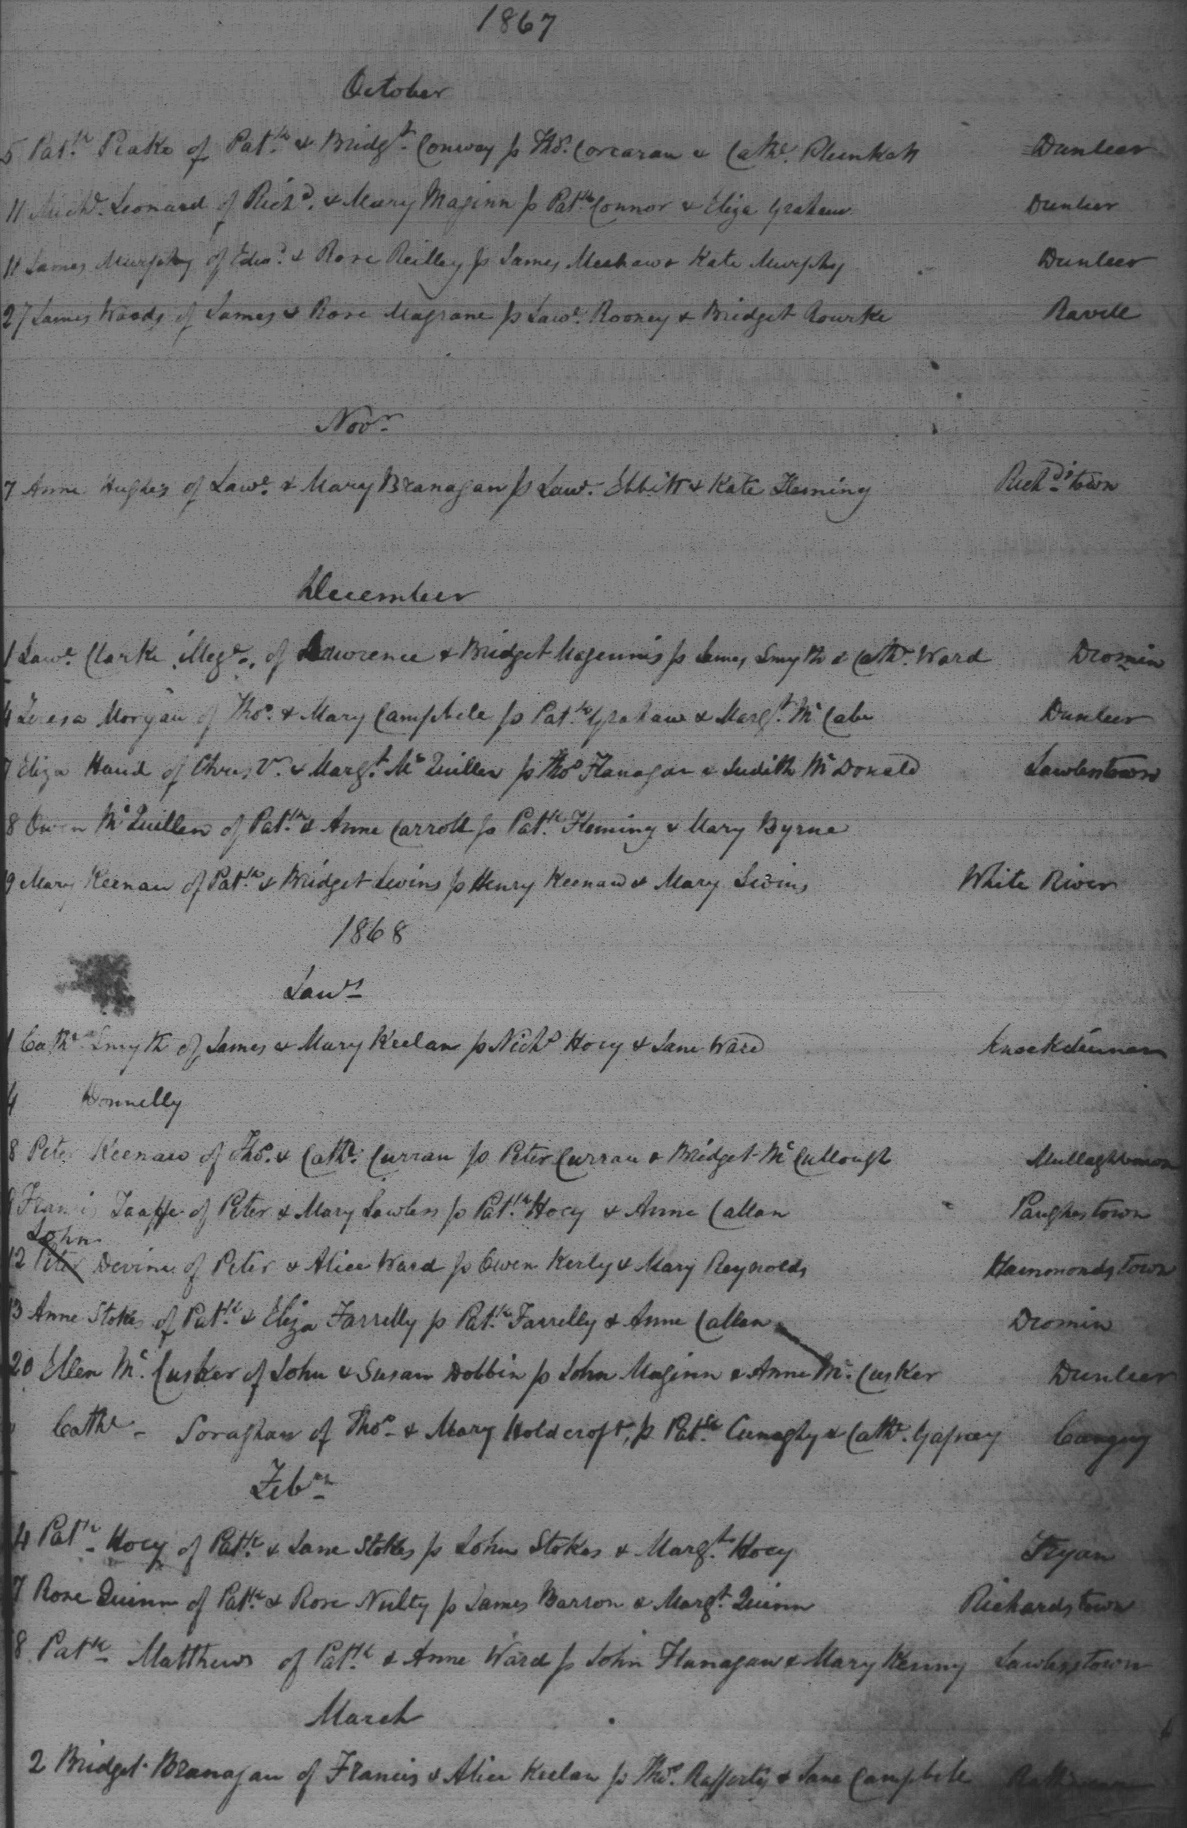 1867
October
5 Patk Peake of Patk & Bridgt Conway ps Thos Corcaran & Cathe Plunkett Dunleer
11 Michl Leonard of Richd & Mary Maginn ps Patk Connor & Eliza Graham Dunleer
11 James Murphy of Edwd & Rose Reilley ps James Meehan & Kate Murphy Dunleer
27 James Woods of James & Rose Magrane ps Lawe Rooney & Bridget Rourke Ravell
Novr
7 Anne Hughes of Lawe & Mary Branagan ps Lawe Ebbitt & Kate Fleming Richdstown
December
1 Lawe Clarke illegte of Lawrence & Bridget Magennis ps James Smyth & Cathe Ward Dromin
4 Teresa Morgan of Thos & Mary Campbele ps Patk Graham & Margt McCabe Dunleer
7 Eliza Hand of Chrisr & Margt McQuillen ps Thos Flanagan & Judith McDonald Lawlesstown
8 Owen McQuillen of Patk & Anne Carroll ps Patk Fleming & Mary Byrne
9 Mary Keenan of Patk & Bridget Levins ps Henry Keenan & Mary Levins White River
1868
Jany
1 Cathe Smyth of James & Mary Keelan ps Nichs Hoey & Jane Ward Knockdinnan
4 Donnelly
8 Peter Keenan of Thos & Cathe Curran ps Peter Curran & Bridget McCullough
Francis Taaffe of Peter & Mary Lawless ps Patk Hoey & Anne Callan Paughestown
John
12 Peter Devine of Peter & Alice Ward ps Owen Kerly & Mary Reynolds Hammondstown
13 Anne Stokes of Patk & Eliza Farrelly ps Patk Farrelly & Anne Callan Dromin
20 Ellen McCusker of John & Susan Dobbin ps John Maginn & Anne McCusker Dunleer
Cathe Soraghan of Thos & Mary Holdcroft, ps Patk Cunaghy & Cathe Gafney
Feby
4 Patk Hoey of Patk & Jane Stokes ps John Stokes & Margt Hoey Tryan
7 Rose Quinn of Patk & Rose Nulty ps James Barron & Margt Quinn Richardstown
8 Patk Matthews of Patk & Anne Ward ps John Flanagan & Mary Kenny Lawlesstown
March
2 Bridget Branagan of Francis & Alice Keelan ps Thos Rafferty & Jane Campbele